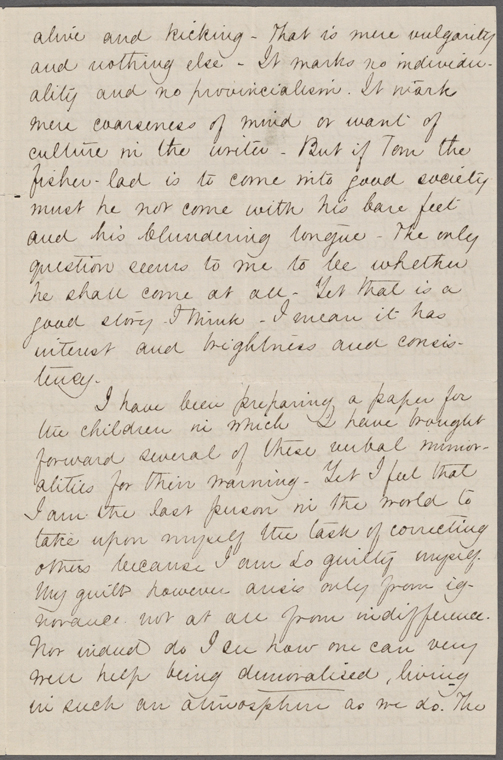 alive and kicking - That is mere vulgarity
and nothing else - It marks no individu-
ality and no provincialism. It mark
mere coarseness of mind or want of
culture in the writer - But if Tom the
fisher-lad is to come into good society
must he not come with his bare feet
and his blundering tongue - The only
question seems to me to be whether
he shall come at all - Yet that is a
good story I think - I mean it has
interest and brightness and consis-
tency.
I have been preparing a paper for
the children in which I have brought
forward several of these verbal immor-
alities for their warning - Yet I feel that
I am the last person in the world to
take upon myself the task of correcting
others because I am so guilty myself.
My guilt however arises only from ig-
norance not at all from indifference.
Nor indeed do I see how one can very
well help being demoralised, living
in such an atmosphere as we do. The